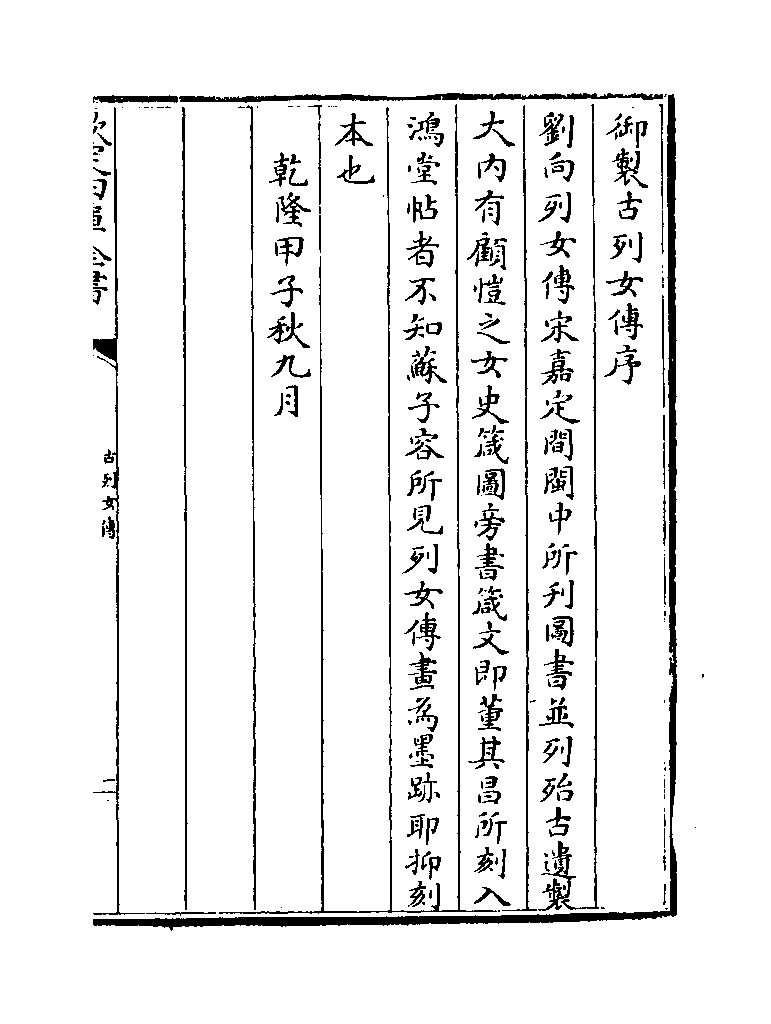 御製古列女傳序
劉向列女傳宋嘉定間閩中所刋圖書並列殆古遺製
大内有顧愷之女史箴圖旁書箴文即董其昌所刻入
鴻堂帖者不知蘇子容所見列女傳畫為墨跡耶抑刻
本也
乾隆甲子秋九月
欽定四庫全書
古列女傳
二